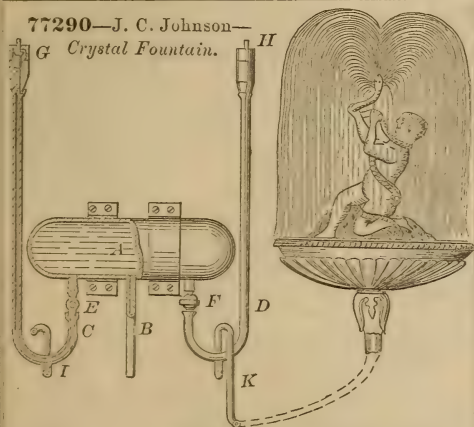 77290—J. C. Johnson—
Crystal Fountain.
G
H
A
E
F
D
C
B
I
K